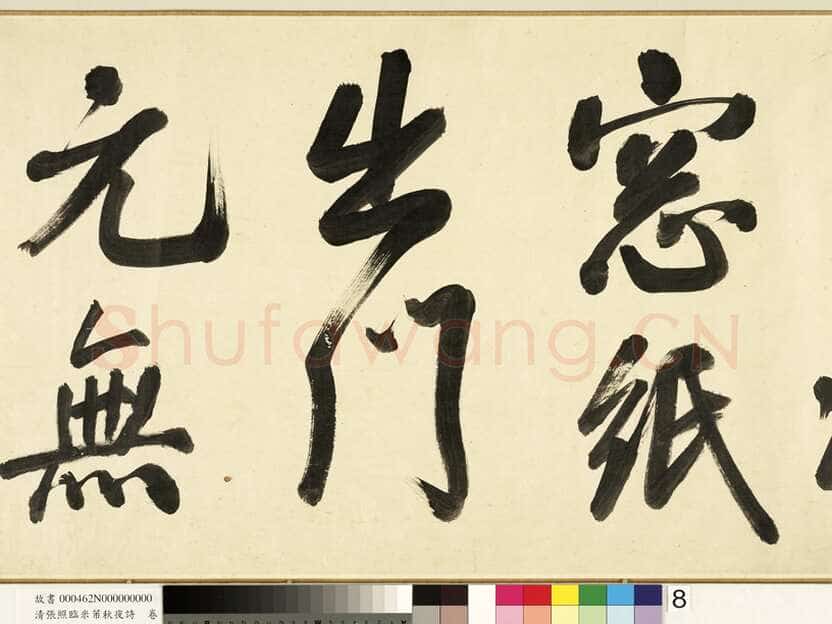 窓紙
出門
元無
Shufawang.CN
故書 000462N000000000
清張照臨米芾秋夜詩 卷
8